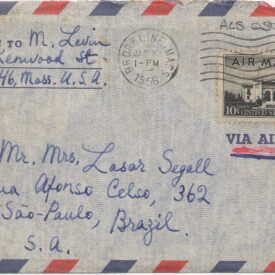 ALS
TO M. Levin
Kenwood St.
46, Mass. U.S.A.
BROOKLINE, MASS.
1-PM
1956
AIR MAIL
10¢
VIA AI
Mr. Mrs. Lasar Segall
ua Afonso Celso, 362
São-Paulo, Brazil.
S. A.